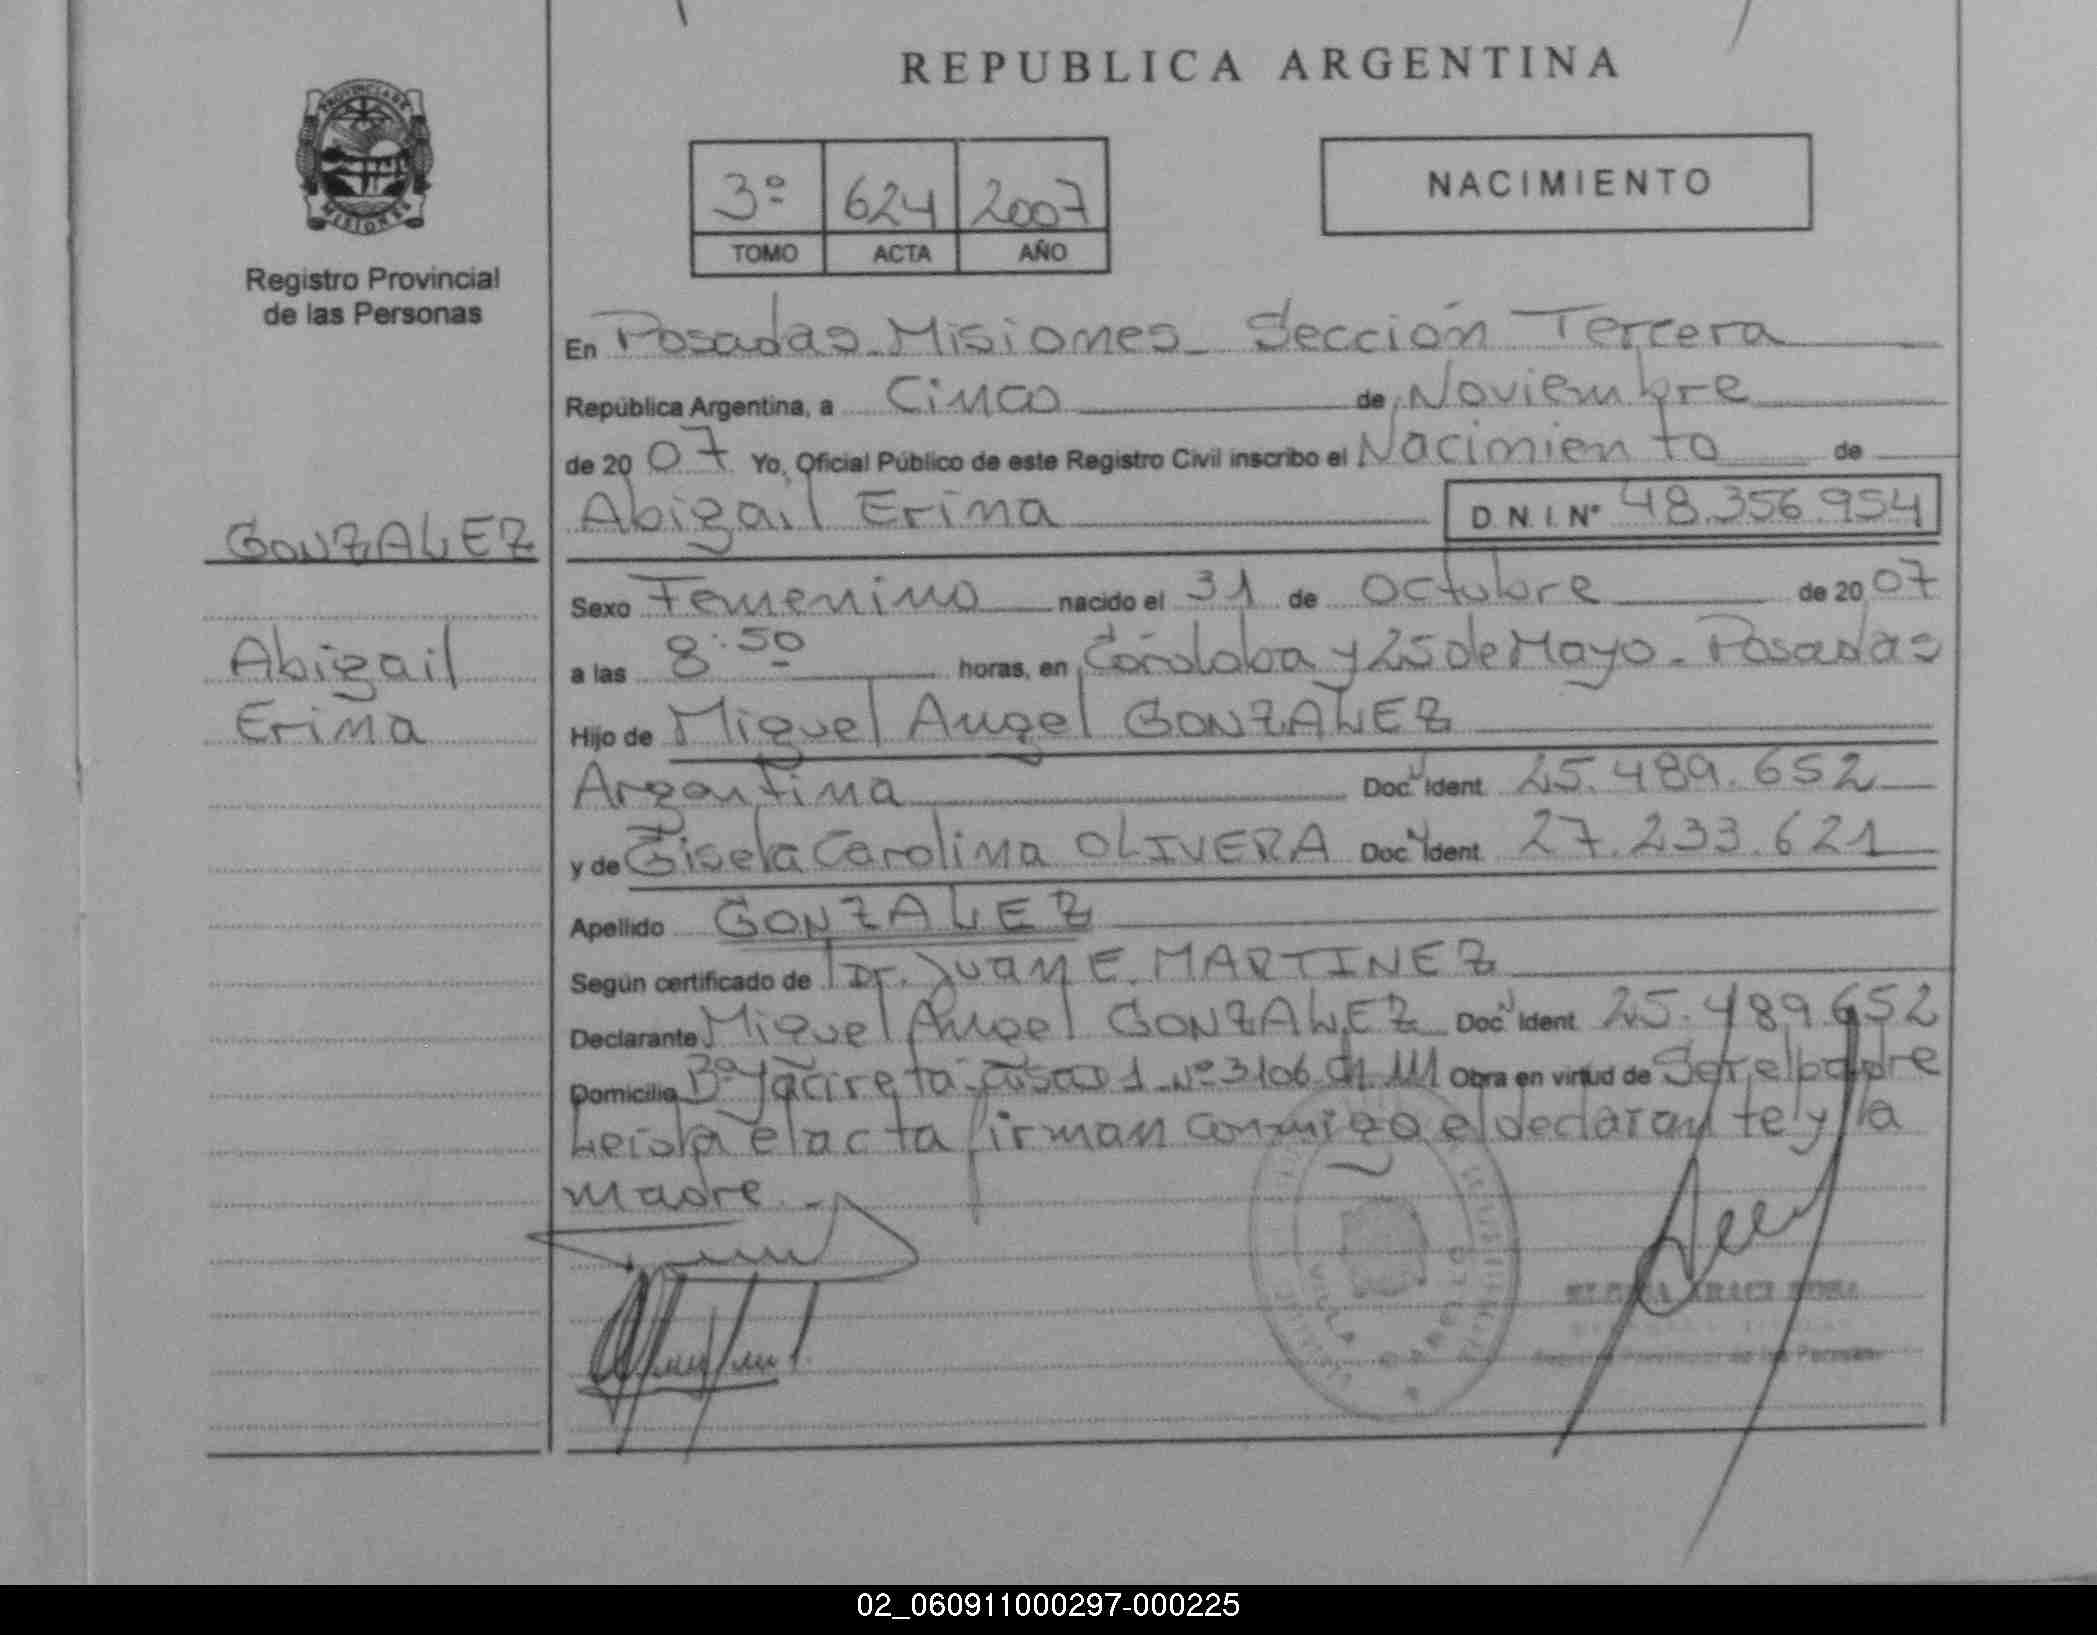 REPUBLICA ARGENTINA
PROVINCIA DE
MISIONES
Registro Provincial
de las Personas
3º 624 2007
TOMO ACTA AÑO
NACIMIENTO
En Posadas Misiones Sección Tercera
República Argentina, a Cinco de Noviembre
de 2007 Yo, Oficial Público de este Registro Civil inscribo el Nacimiento de
Abigail Erina D.N.I. Nº 48.356.954
GONZALEZ
Abigail
Erina
Sexo Femenino nacido el 31 de Octubre de 2007
a las 8:50 horas, en Córdoba y 25 de Mayo - Posadas
Hijo de Miguel Angel GONZALEZ
Argentina Doc. Ident. 25.489.652
y de Gisela Carolina OLIVERA Doc. Ident. 27.233.621
Apellido GONZALEZ
Según certificado de Dr. Juan E. MARTINEZ
Declarante Miguel Angel GONZALEZ Doc. Ident. 25.489.652
Domicilio Bº Yacireta casa 1 Nº 3106 Obra en virtud de Ser el padre
Leída el acta firman conmigo el declarante y la
madre.-
VILLA CABELLO
02_060911000297-000225